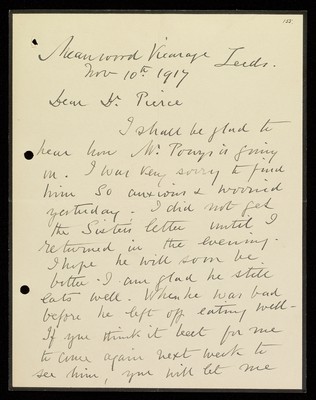 133
Meanwood Vicarage
Leeds.
Nov 10th 1917
Dear Dr Pierce
I shall be glad to
hear how Mr Powys is going
on. I was very sorry to find
him so anxious & worried
yesterday. I did not get
the Sisters letter until I
returned in the evening.
I hope he will soon be
better. I am glad he still
eats well. When he was bad
before he left off eating well -
If you think it best for me
to come again next week to
see him, you will let me